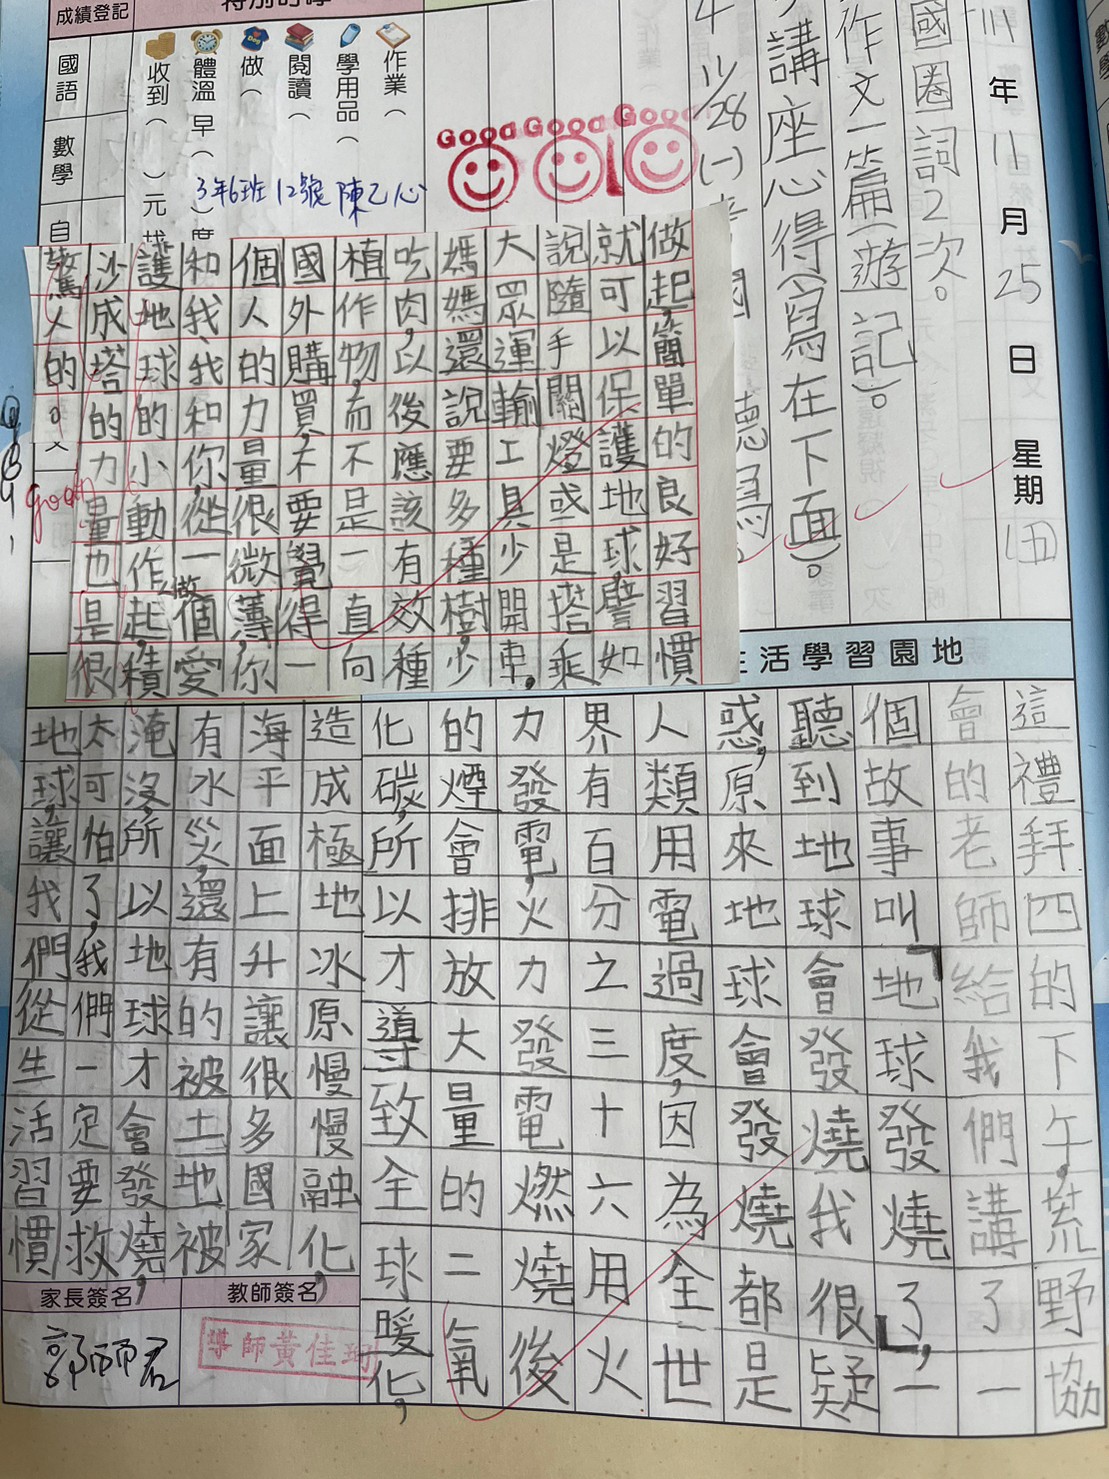 年11月25日 星期(五)
國圈詞2次。
作文一篇(遊記)。
講座心得(寫在下面)。
4 11/28(一)
特別叮嚀
作業(
學用品(
閱讀(
做(
體溫 早( )度
收到( )元
成績登記
國語
數學
自
Good Good Good
3年6班12號 陳乙心
生活學習園地
這禮拜四的下午,荒野協
會的老師給我們講了一
個故事叫「地球發燒了」,一
聽到地球會發燒我很疑
惑,原來地球會發燒都是
人類用電過度,因為全世
界有百分之三十六用火
力發電,火力發電燃燒後
的煙會排放大量的二氧
化碳,所以才導致全球暖化,
造成極地冰原慢慢融化,
海平面上升讓很多國家
有水災,還有的被土地被
淹沒,所以地球才會發燒,
太可怕了,我們一定要救
地球,讓我們從生活習慣
做起,簡單的良好習慣
就可以保護地球,譬如
說隨手關燈或是搭乘
大眾運輸工具少開車,
媽媽還說要多種樹,少
吃肉,以後應該有效種
植作物,而不是一直向
國外購買,不要覺得一
個人的力量很微薄,你
和我、我和你,從一個愛
護地球的小動作做起,積
沙成塔的力量也是很
驚人的。
good
教師簽名
導師黃佳珂
家長簽名